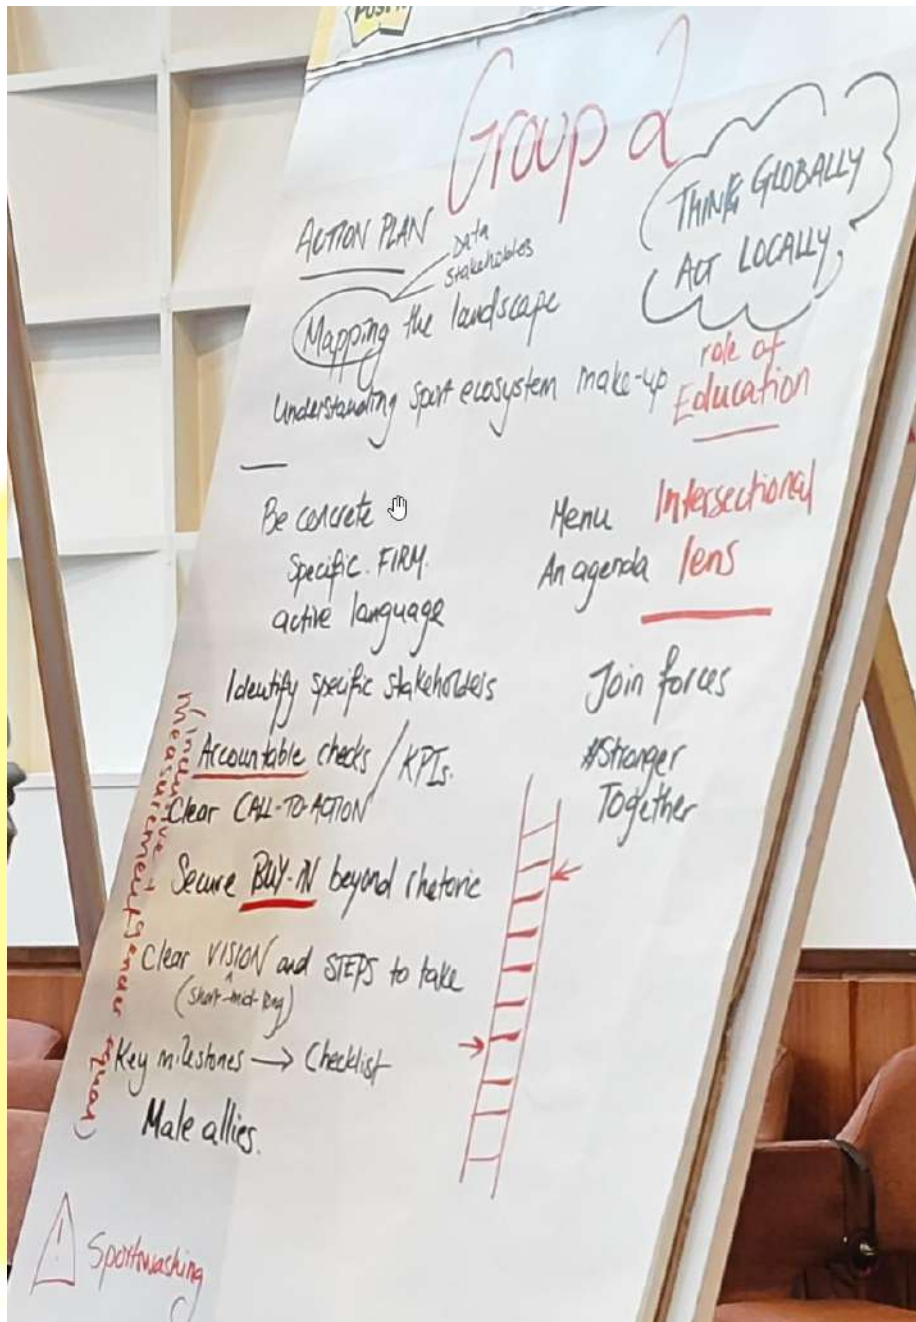 POST-it
Group 2
THINK GLOBALLY
ACT LOCALLY
ACTION PLAN
Data
stakeholders
Mapping the landscape
Understanding sport ecosystem make-up
role of
Education
Be concrete
Specific. FIRM.
active language
Menu
An agenda
Intersectional
lens
Identify specific stakeholders
Join forces
Accountable checks / KPIs.
#Stronger
Together
Clear CALL-TO-ACTION
Secure BUY-IN beyond rhetoric
Clear VISION and STEPS to take
(short-mid-long)
Key milestones → Checklist
Male allies.
Measurement
(inclusive, gender equal)
! Sportwashing